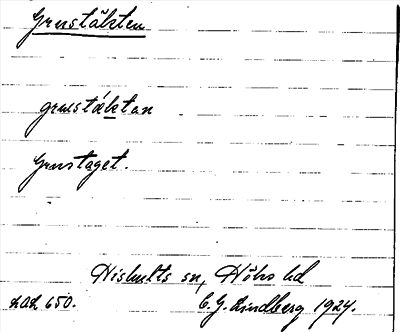 Grustäkten
grustäktan
Grustaget.
Hishults sn, Höks hd
LAL 650. C. G. Lindberg 1924.